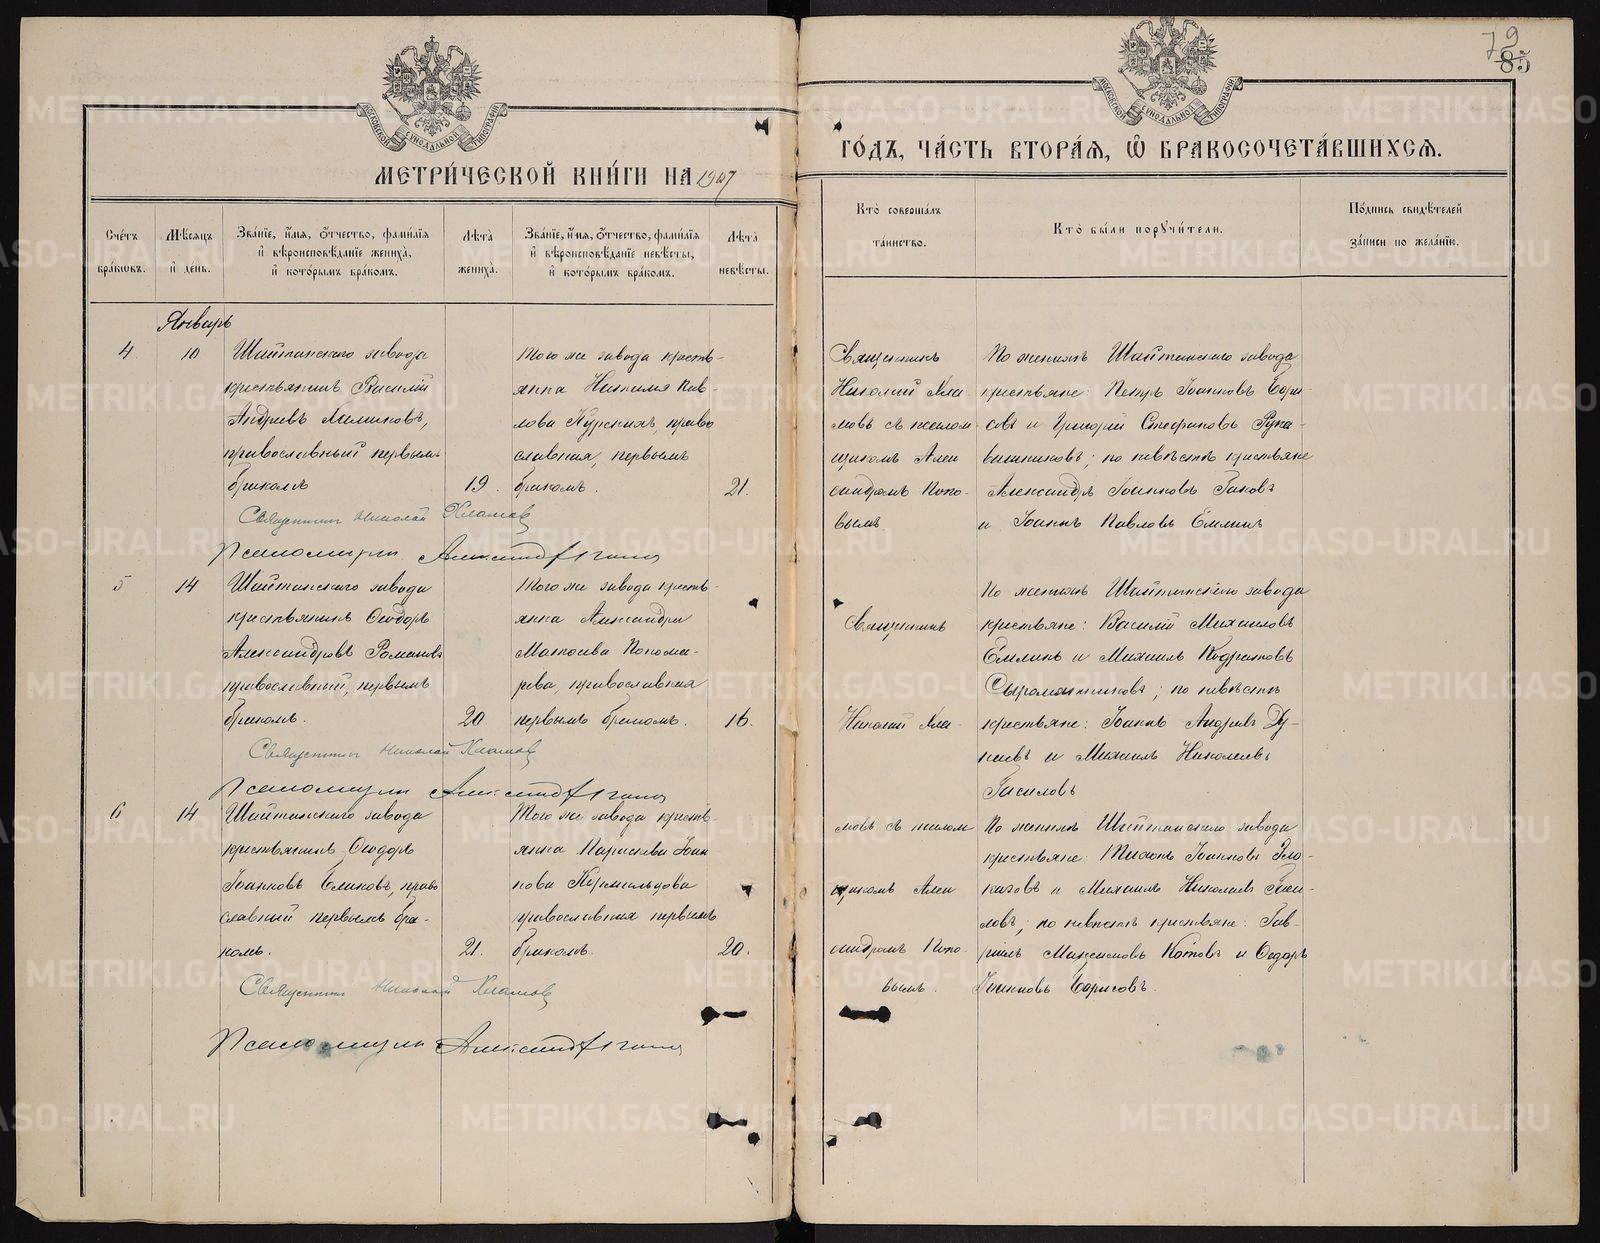 79
85
МЕТРИ́ЧЕСКОЙ КНИ́ГИ НА 1907
ГО́ДЪ, ЧА́СТЬ ВТОРА́Я, Ѡ БРАКОСОЧЕТА́ВШИХСЯ.
Сче́тъ бра́ковъ.
Мѣ́сяцъ и҆ де́нь.
Зва́нїе, и҆́мя, ѻ҆́тчество, фами́лїя и҆ вѣроисповѣ́данїе жениха̀, и҆ кото́рымъ бра́комъ.
Лѣ́та жениха̀.
Зва́нїе, и҆́мя, ѻ҆́тчество, фами́лїя и҆ вѣроисповѣ́данїе невѣ́сты, и҆ кото́рымъ бра́комъ.
Лѣ́та невѣ́сты.
Кто̀ соверша́лъ та́инство.
Кто̀ бы́ли поручи́тели.
По́дпись свидѣ́телей за́писи по жела́нїю.
Январь
4
10
Шайтанскаго завода
крестьянинъ Василій
Андреевъ
православный первымъ
бракомъ
19.
того же завода кресть-
янка Наталія Пав-
лова Курскихъ, право
славная, первымъ
бракомъ.
21.
Священникъ
Николай Хла-
мовъ съ псалом-
щикомъ Алек
сандромъ Попо-
вымъ
По женихѣ Шайтанскаго завода
крестьяне: Петръ Іоанновъ Бори-
совъ и Григорій Стефановъ Рука-
вишниковъ; по невѣстѣ крестьяне
Александръ Іоанновъ
и Іоаннъ Павловъ Емлинъ
Священникъ Николай Хламов
Псаломщикъ Александръ Попов
5
14
Шайтанскаго завода
крестьянинъ Ѳеодоръ
Александровъ Романовъ
православный, первымъ
бракомъ.
20
того же завода кресть-
янка Александра
Матѳеева Понома-
рева, православная
первымъ бракомъ.
16.
Священникъ
Николай Хла-
По женихѣ Шайтанскаго завода
крестьяне: Василій Михаиловъ
Емлинъ и Михаилъ Кодратовъ
Сыромятниковъ; по невѣстѣ
крестьяне: Іоаннъ Андреевъ Ду-
наевъ и Михаилъ Николаевъ
Священникъ Николай Хламов
Псаломщикъ Александръ Попов
6
14
Шайтанскаго завода
крестьянинъ Ѳеодоръ
Іоанновъ право
славный первымъ бра-
комъ.
21.
Того же завода кресть-
янка Параскева Іоан
нова
православная первымъ
бракомъ.
20.
мовъ съ псалом
щикомъ Алек
сандромъ Попо-
вымъ.
По женихѣ Шайтанскаго завода
крестьяне: Тихонъ Іоанновъ Зло-
казовъ и Михаилъ Николаевъ
ловъ; по невѣстѣ крестьяне: Гав-
риилъ Максимовъ Котовъ и Ѳеодоръ
Іоанновъ Борисовъ.
Священникъ Николай Хламов
Псаломщикъ Александръ Попов
METRIKI.GASO-URAL.RU